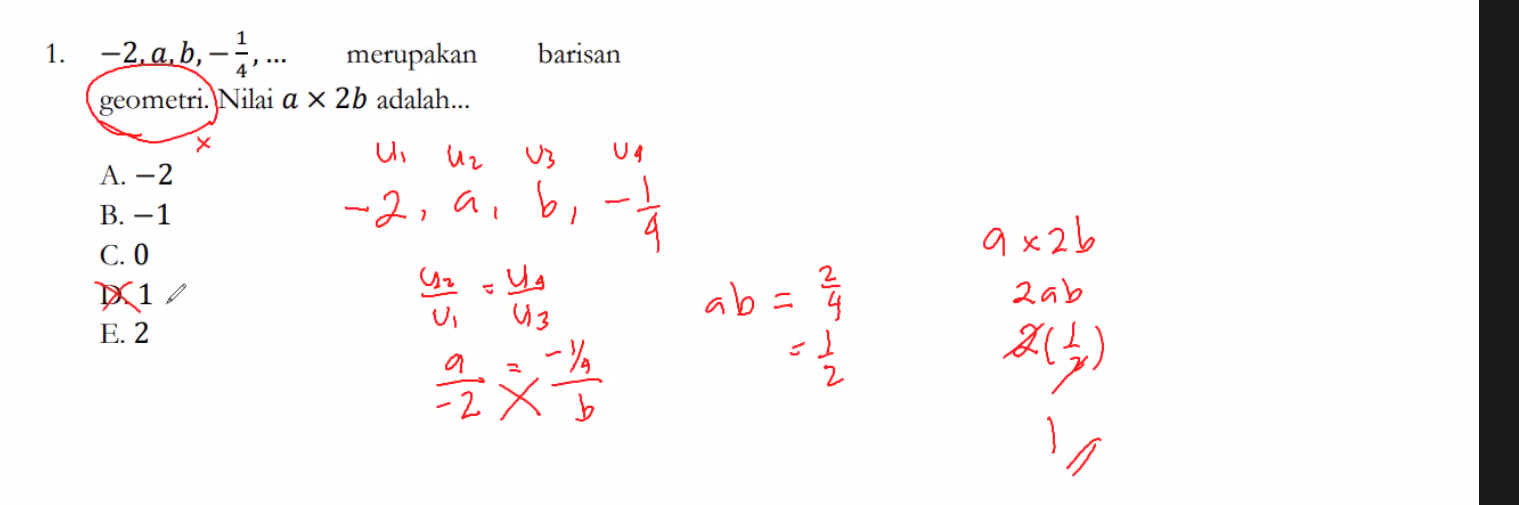 1. −2, a, b, −1/4, ... merupakan barisan
geometri. Nilai a × 2b adalah...
A. −2
B. −1
C. 0
D. 1
E. 2
x
U1 U2 U3 U4
-2, a, b, -1/4
U2/U1 = U4/U3
a/-2 = -1/4/b
ab = 2/4
= 1/2
a x 2b
2ab
2(1/2)
1